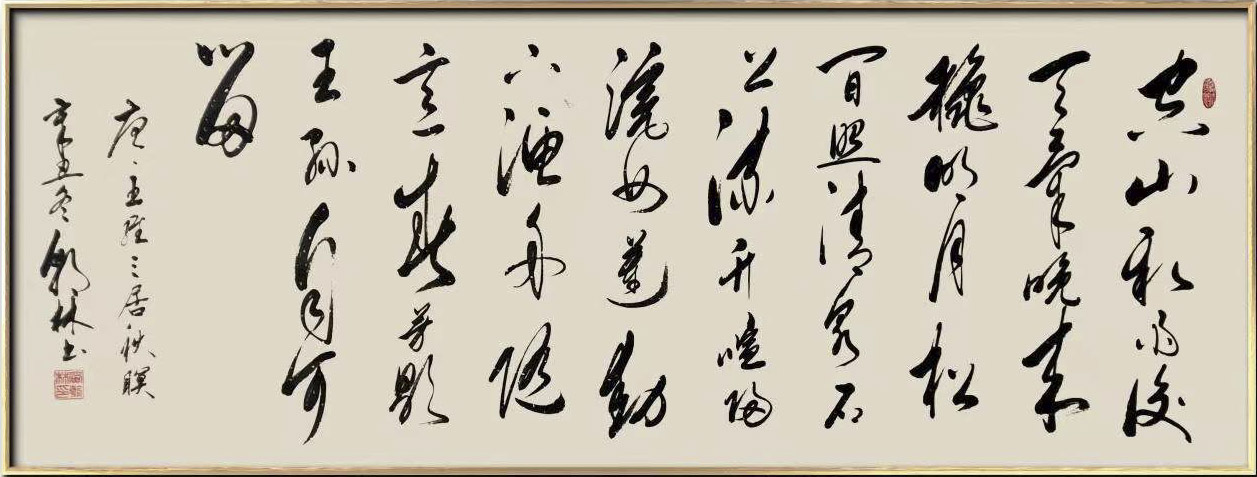 空山新雨後
天氣晚來
秋明月松
間照清泉石
上流竹喧歸
浣女蓮動
下漁舟隨
意春芳歇
王孫自可
留
唐·王維山居秋暝
辛丑冬林书